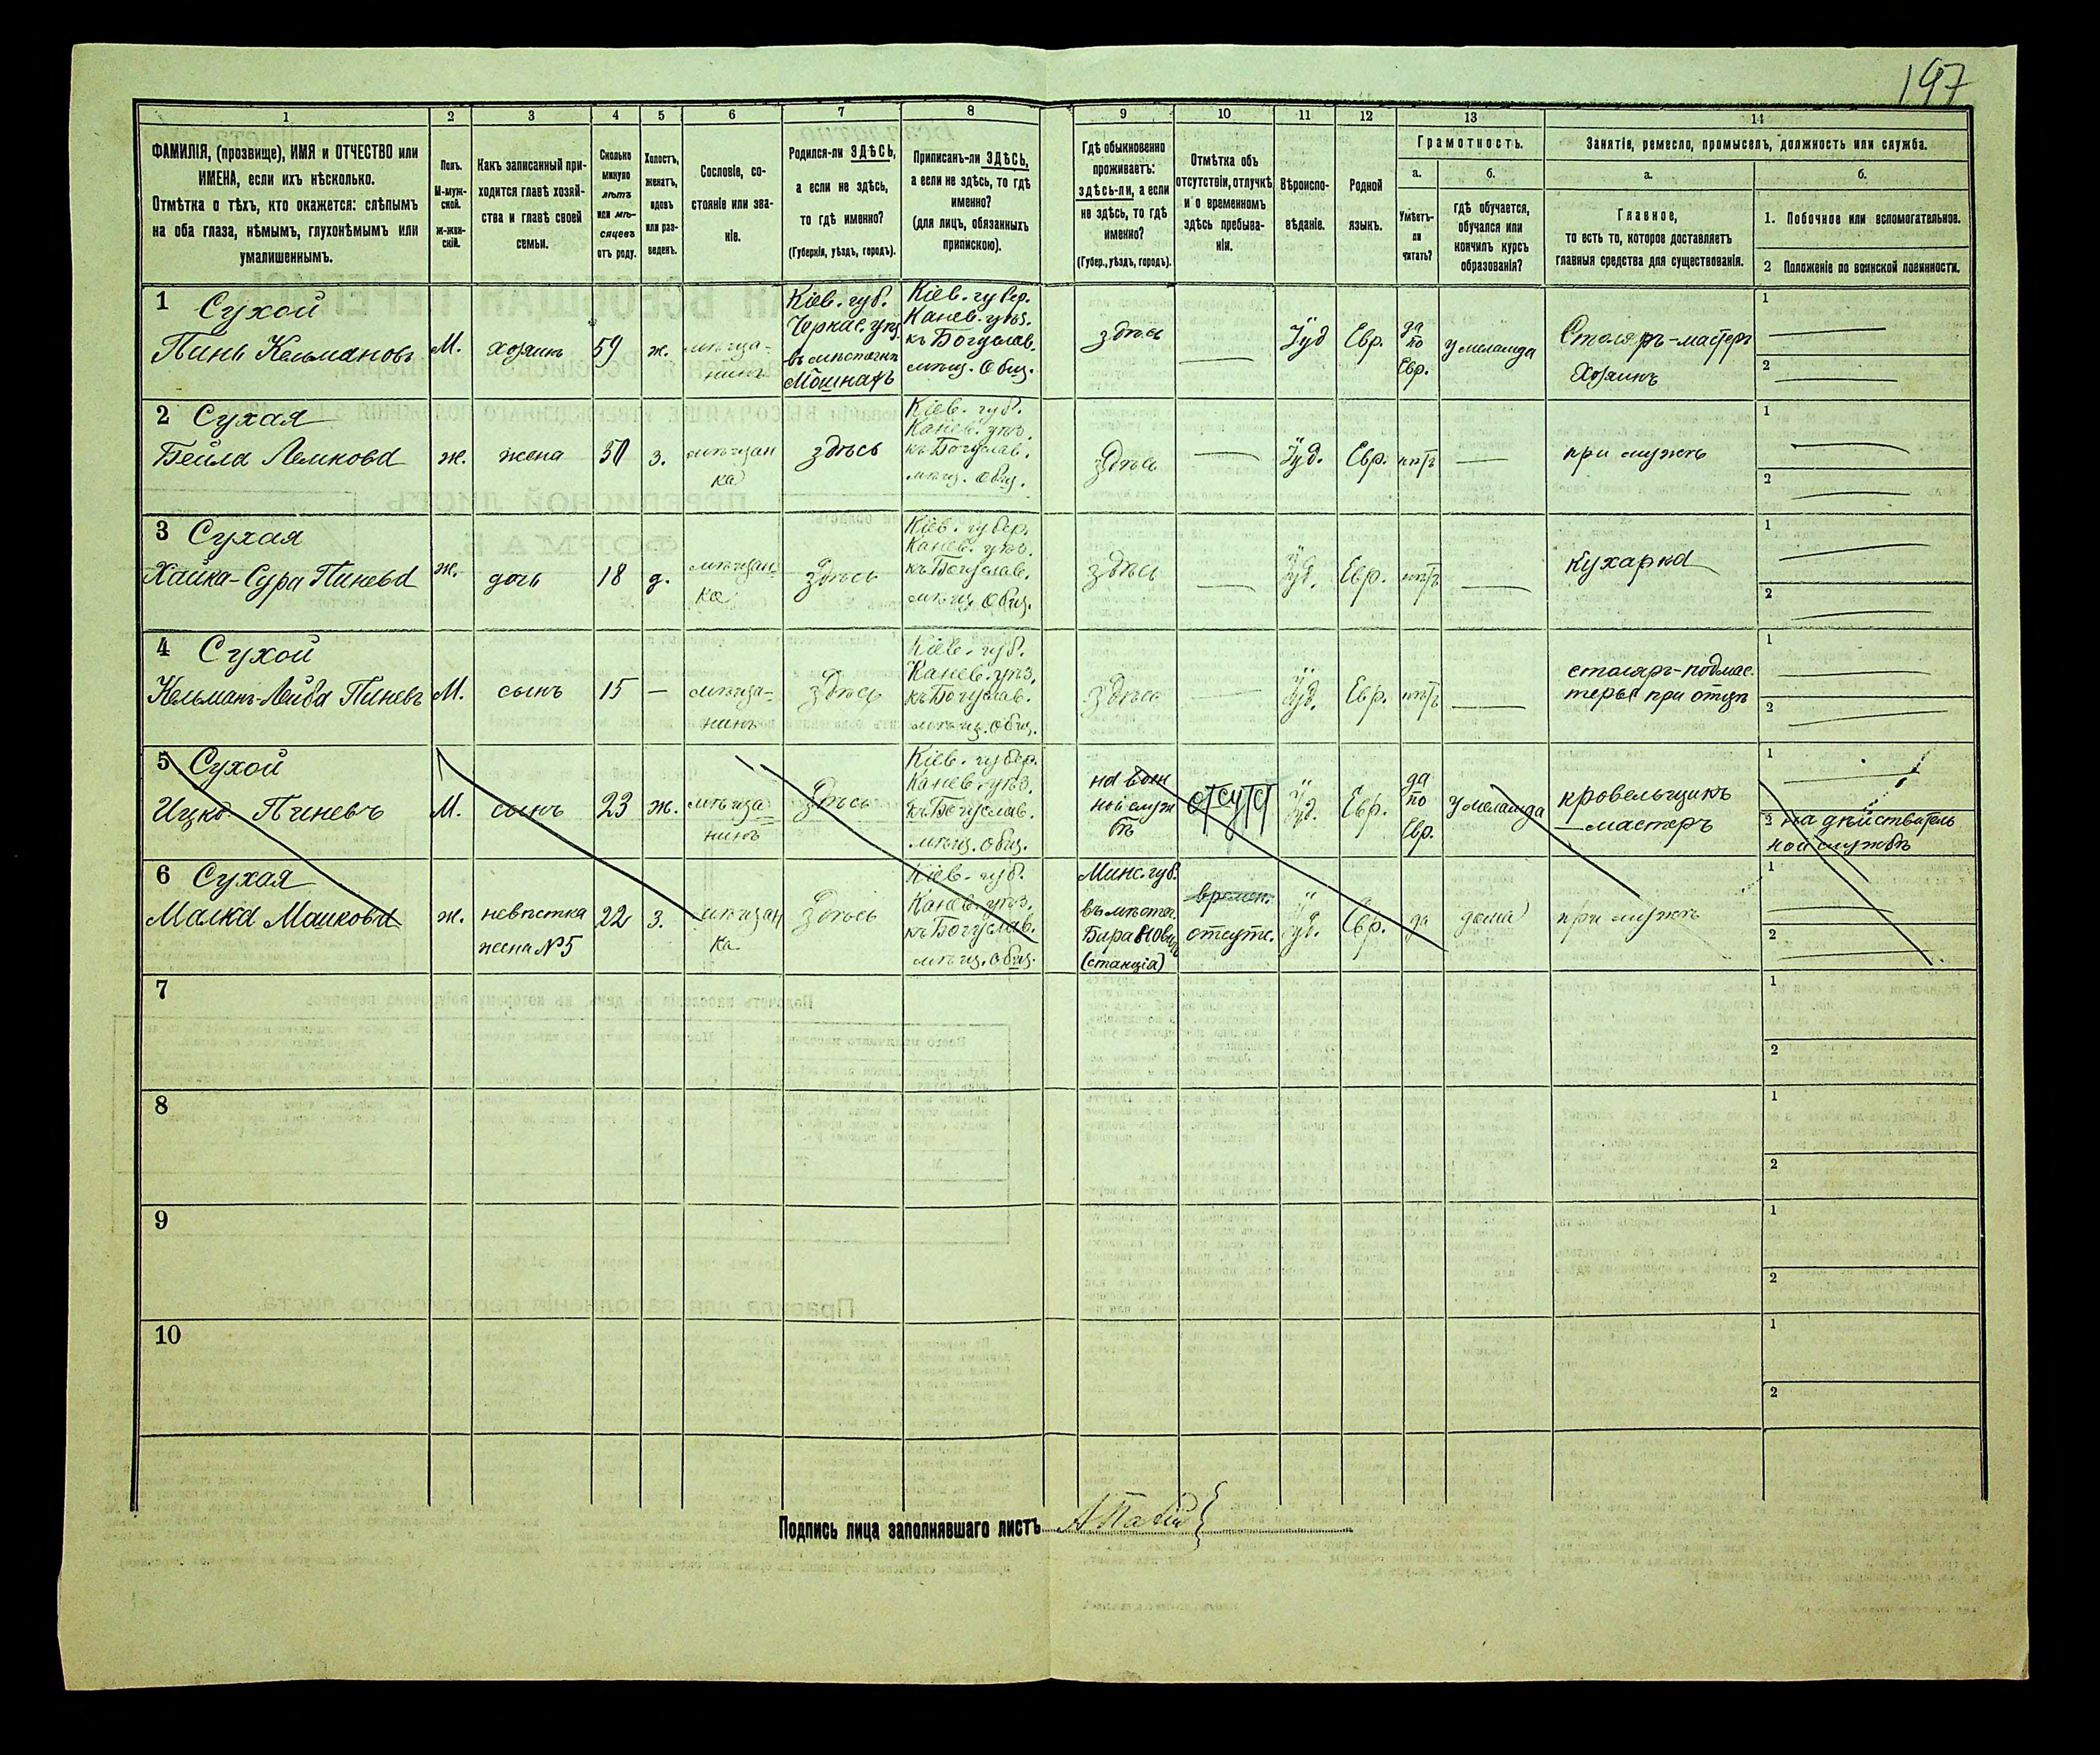 197
1 2 3 4 5 6 7 8 9 10 11 12 13 14
ФАМИЛІЯ, (прозвище), ИМЯ и ОТЧЕСТВО или
ИМЕНА, если ихъ нѣсколько.
Отмѣтка о тѣхъ, кто окажется: слѣпымъ
на оба глаза, нѣмымъ, глухонѣмымъ или
умалишеннымъ.
Полъ.
М-муж-
ской.
ж-жен-
скій.
Какъ записанный при-
ходится главѣ хозяй-
ства и главѣ своей
семьи.
Сколько
минуло
лѣтъ
или мѣ-
сяцевъ
отъ роду.
Холостъ,
женатъ,
вдовъ
или раз-
веденъ.
Сословіе, со-
стояніе или зва-
ніе.
Родился-ли ЗДѢСЬ,
а если не здѣсь,
то гдѣ именно?
(Губернія, уѣздъ, городъ).
Приписанъ-ли ЗДѢСЬ,
а если не здѣсь, то гдѣ
именно?
(для лицъ, обязанныхъ
припискою).
Гдѣ обыкновенно
проживаетъ:
здѣсь-ли, а если
не здѣсь, то гдѣ
именно?
(Губер., уѣздъ, городъ).
Отмѣтка объ
отсутствіи, отлучкѣ
и о временномъ
здѣсь пребыва-
ніи.
Вѣроиспо-
вѣданіе.
Родной
языкъ.
Грамотность.
а.
Умѣетъ-
ли
читать?
б.
гдѣ обучается,
обучался или
кончилъ курсъ
образованія?
Занятіе, ремесло, промыселъ, должность или служба.
а.
Главное,
то есть то, которое доставляетъ
главныя средства для существованія.
б.
1. Побочное или вспомогательное.
2 Положеніе по воинской повинности.
1 Сухой
Пинь Кельмановъ
М.
хозяинъ
59
ж.
мѣща-
нинъ
Кіев. губ.
Черкас. уѣз.
въ мѣстечкѣ
Мошнахъ
Кіев. губер.
Канев. уѣз.
къ Богуслав.
мѣщ. Общ.
здѣсь
—
Іуд
Евр.
да
по
Евр.
у меламда
Столяръ-мастеръ
Хозяинъ
1 —
2 —
2 Сухая
Бейла Лемкова
ж.
жена
50
з.
мѣщан
ка
здѣсь
Кіев. губ.
Канев. уѣз.
къ Богуслав.
мѣщ. Общ.
здѣсь
—
Іуд.
Евр.
нѣтъ
—
при мужѣ
1 —
2 —
3 Сухая
Хайка-Сура Пинева
ж.
дочь
18
д.
мѣщан-
ка
здѣсь
Кіев. губер.
Канев. уѣз.
къ Богуслав.
мѣщ. Общ.
здѣсь
—
Іуд.
Евр.
нѣтъ
—
кухарка
1 —
2 —
4 Сухой
Кельманъ-Лейба Пиневъ
М.
сынъ
15
—
мѣща-
нинъ
здѣсь
Кіев. губ.
Канев. уѣз.
къ Богуслав.
мѣщ. Общ.
здѣсь
—
Іуд.
Евр.
нѣтъ
—
столяръ-подмас-
терье при отцѣ
1 —
2 —
5 Сухой
Ицко Пиневъ
М.
сынъ
23
ж.
мѣща
нинъ
здѣсь
Кіев. губер.
Канев. уѣз.
къ Богуслав.
мѣщ. Общ.
на воен
ной служ
бѣ
отсутст
Іуд.
Евр.
да
по
Евр.
у меламда
кровельщикъ
—мастеръ
1 —
2 на дѣйствитель
ной службѣ
6 Сухая
Малка Машкова
ж.
невѣстка
жена №5
22
з.
мѣщан
ка
здѣсь
Кіев. губ.
Канев. уѣз.
къ Богуслав.
мѣщ. Общ.
Минс. губ.
въ мѣстеч.
Барановичи
(станція)
времен.
отсутс.
Іуд.
Евр.
да
дома
при мужѣ
1 —
2 —
7 1
2
8 1
2
9 1
2
10 1
2
Подпись лица заполнявшаго листъ